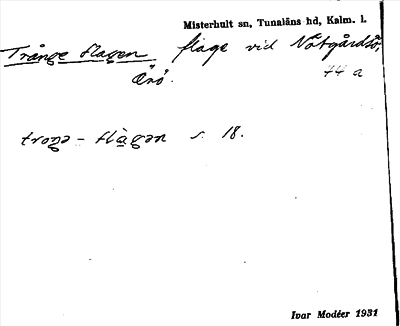 Misterhult sn, Tunaläns hd, Kalm. l.
Trånge flagen flage vid Nötgårdsö,
Örö. 74 a
s. 18.
Ivar Modéer 1931